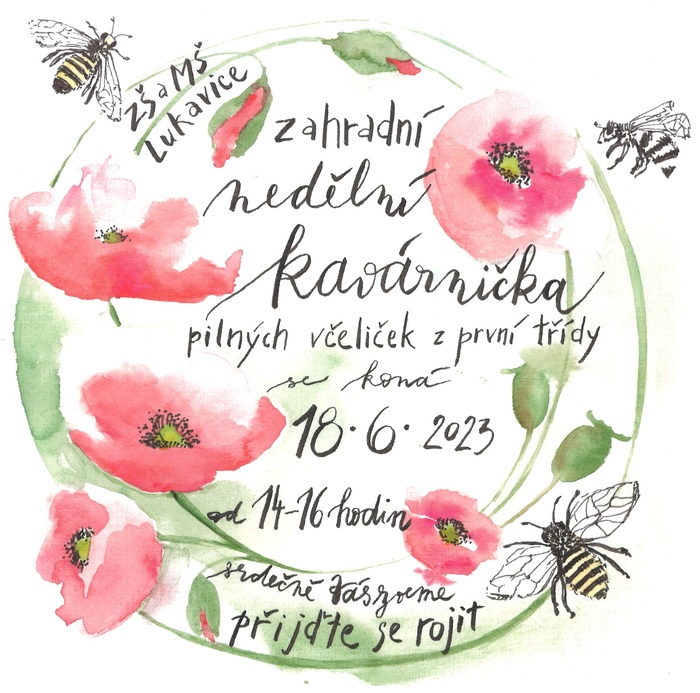 ZŠ a MŠ
Lukavice
zahradní
nedělní
kavárnička
pilných včeliček z první třídy
se koná
18. 6. 2023
od 14-16 hodin
srdečně Vás zveme
přijďte se rojit